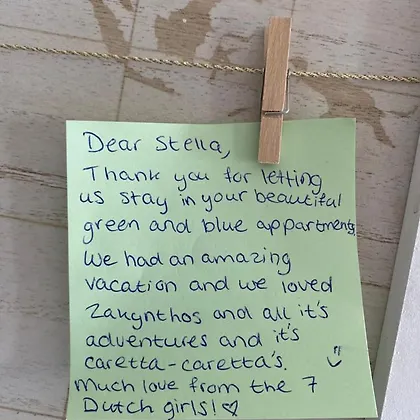 Dear Stella,
Thank you for letting
us stay in your beautiful
green and blue appartments
We had an amazing
vacation and we loved
Zakynthos and all it's
adventures and it's
caretta-caretta's.
Much love from the 7
Dutch girls! ♡